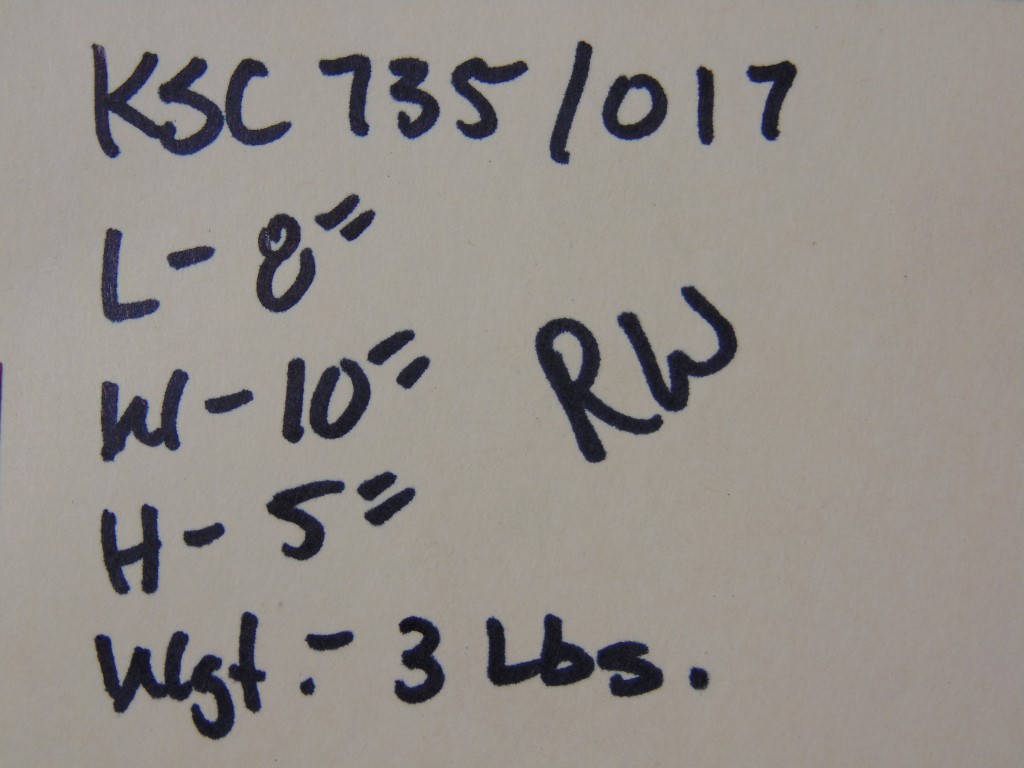 KSC 735/017
L - 8"
W - 10"
RW
H - 5"
Wgt. - 3 Lbs.